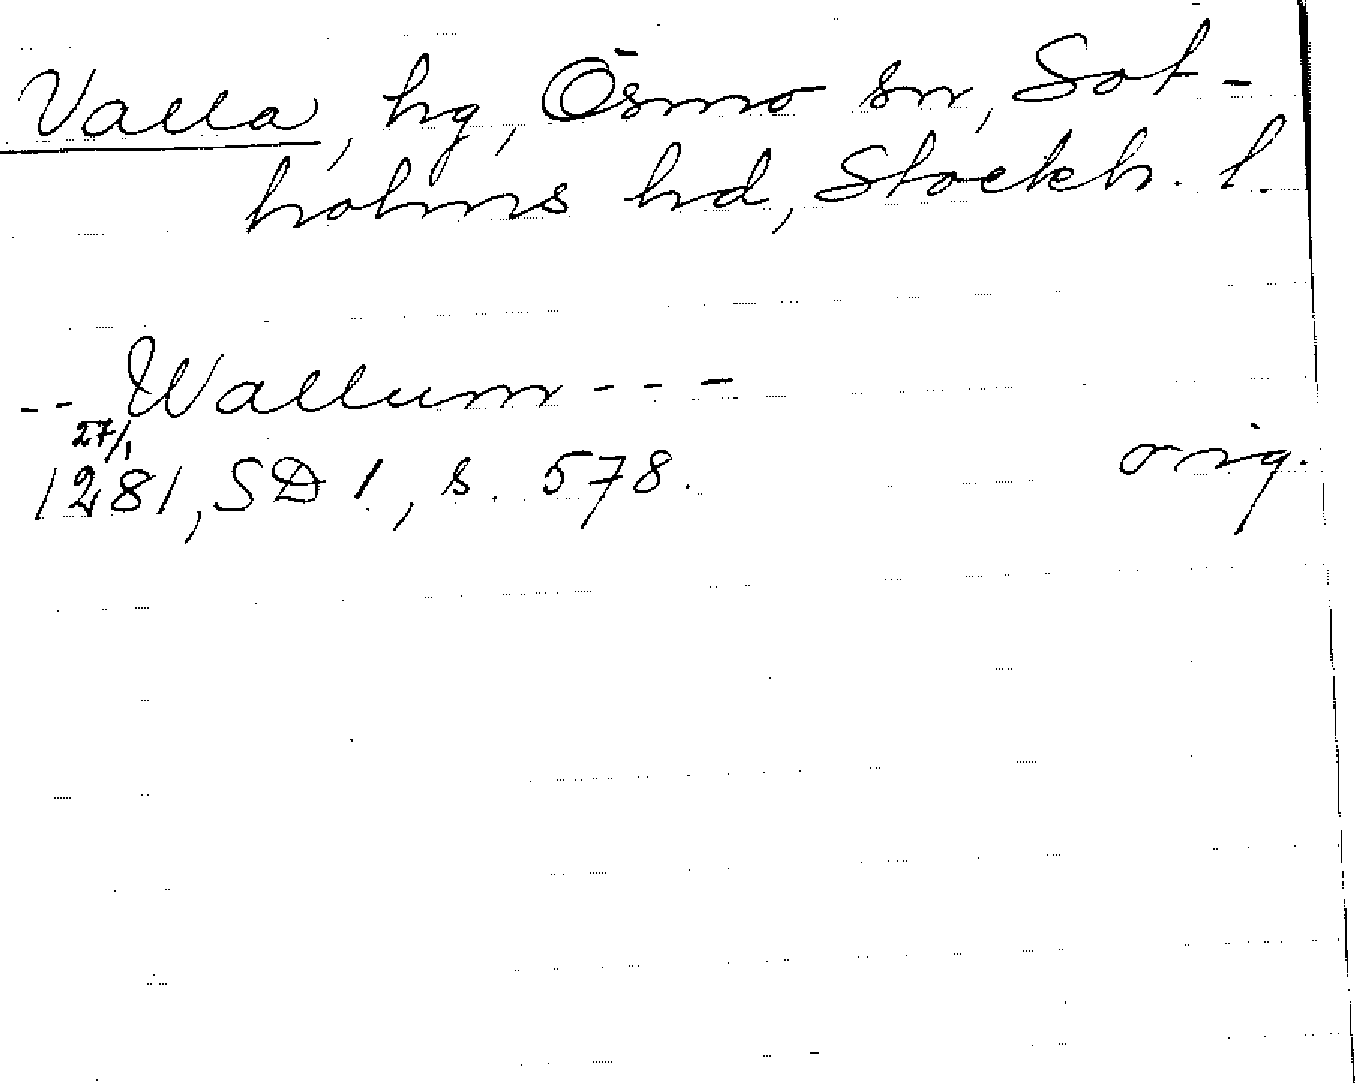 Valla, hg, Ösmo sn, Sot-
holms hd, Stockh. l.
-- Wallum - - -
27/1
1281, SD 1, s. 578. orig.